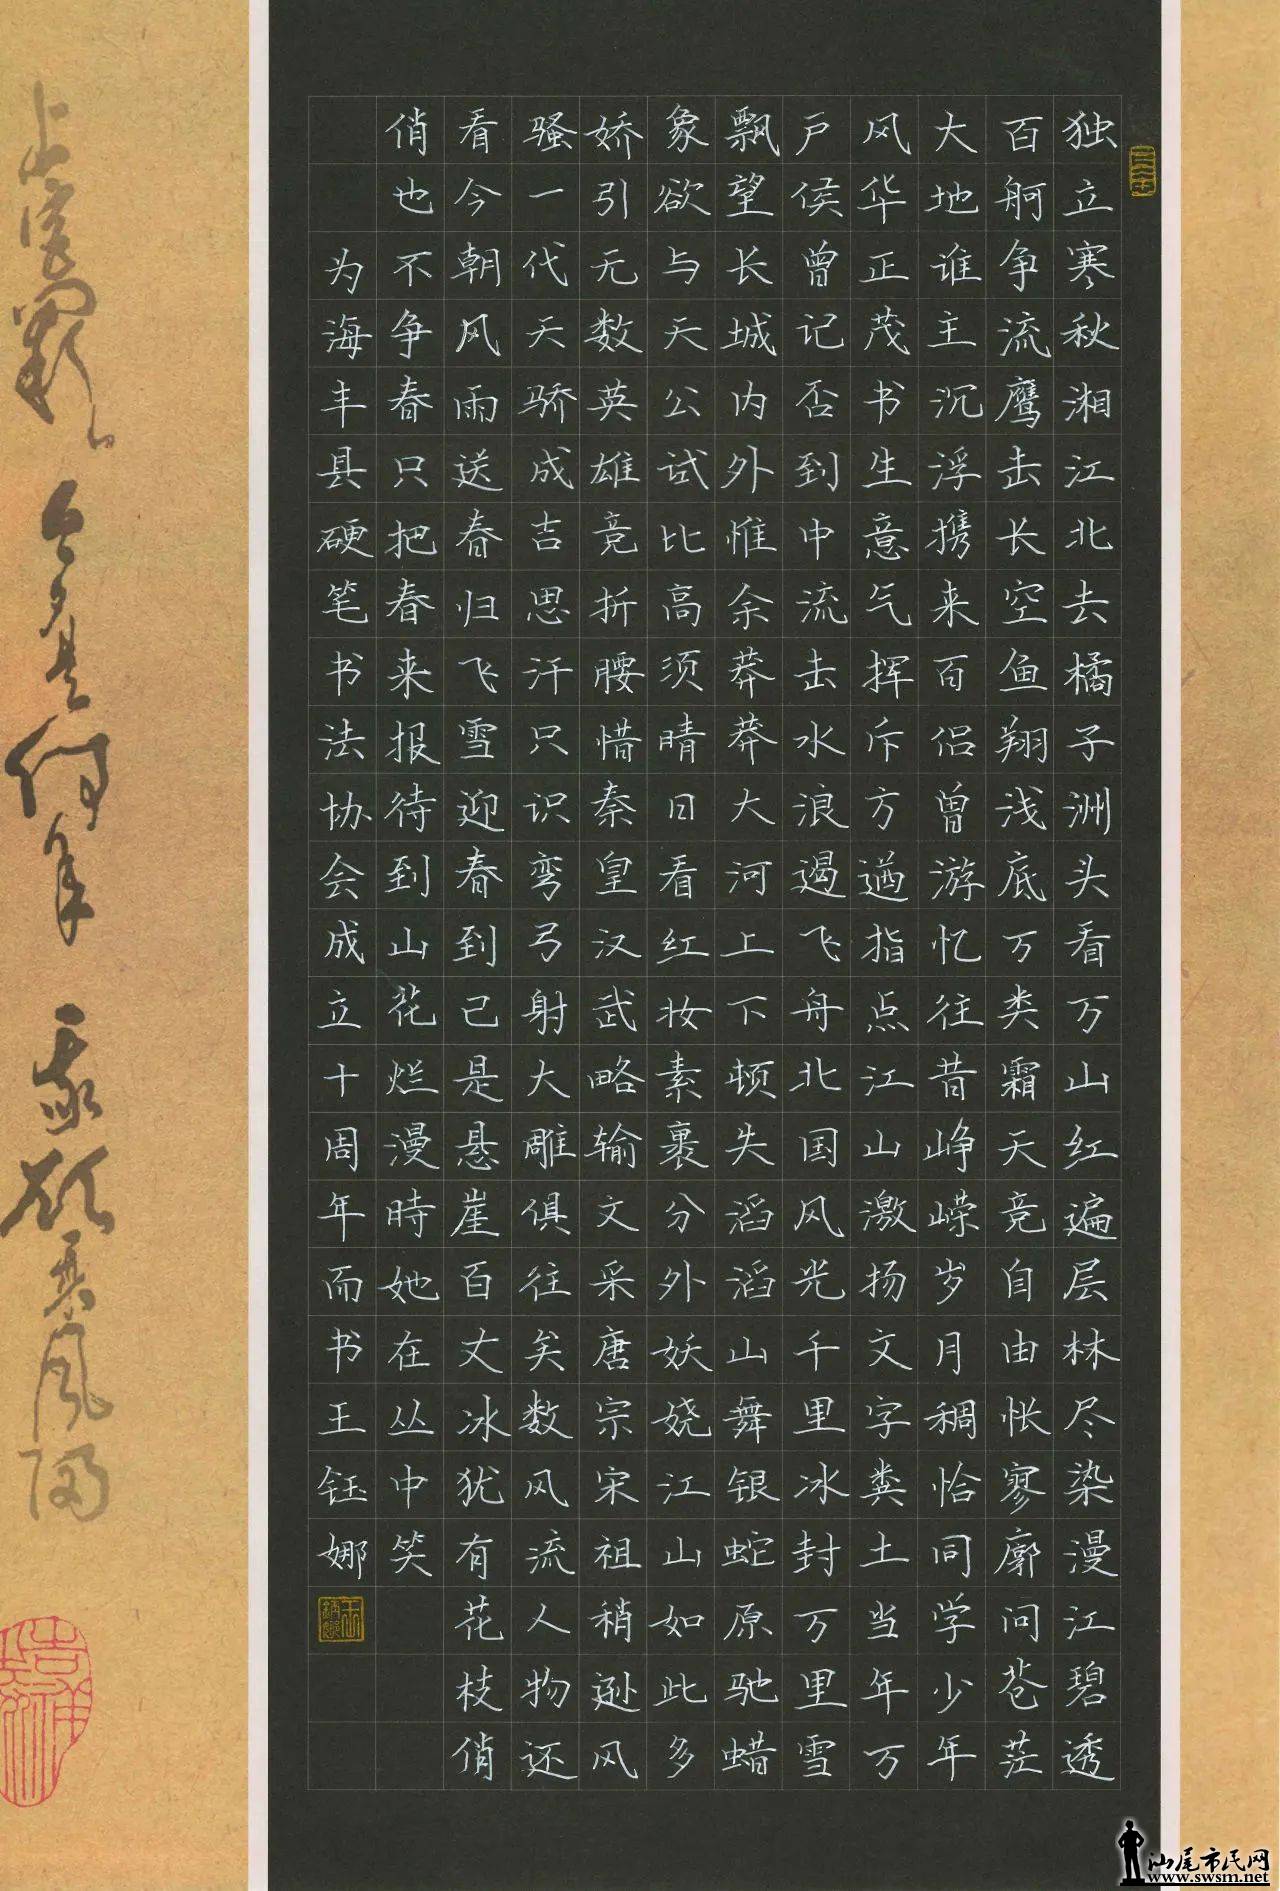 独立寒秋湘江北去橘子洲头看万山红遍层林尽染漫江碧透
百舸争流鹰击长空鱼翔浅底万类霜天竞自由怅寥廓问苍茫
大地谁主沉浮携来百侣曾游忆往昔峥嵘岁月稠恰同学少年
风华正茂书生意气挥斥方遒指点江山激扬文字粪土当年万
户侯曾记否到中流击水浪遏飞舟北国风光千里冰封万里雪
飘望长城内外惟余莽莽大河上下顿失滔滔山舞银蛇原驰蜡
象欲与天公试比高须晴日看红妆素裹分外妖娆江山如此多
娇引无数英雄竞折腰惜秦皇汉武略输文采唐宗宋祖稍逊风
骚一代天骄成吉思汗只识弯弓射大雕俱往矣数风流人物还
看今朝风雨送春归飞雪迎春到已是悬崖百丈冰犹有花枝俏
俏也不争春只把春来报待到山花烂漫時她在丛中笑
为海丰县硬笔书法协会成立十周年而书王钰娜
上宫阙今夕是何年我欲乘风归
汕尾市民网
www.swsm.net